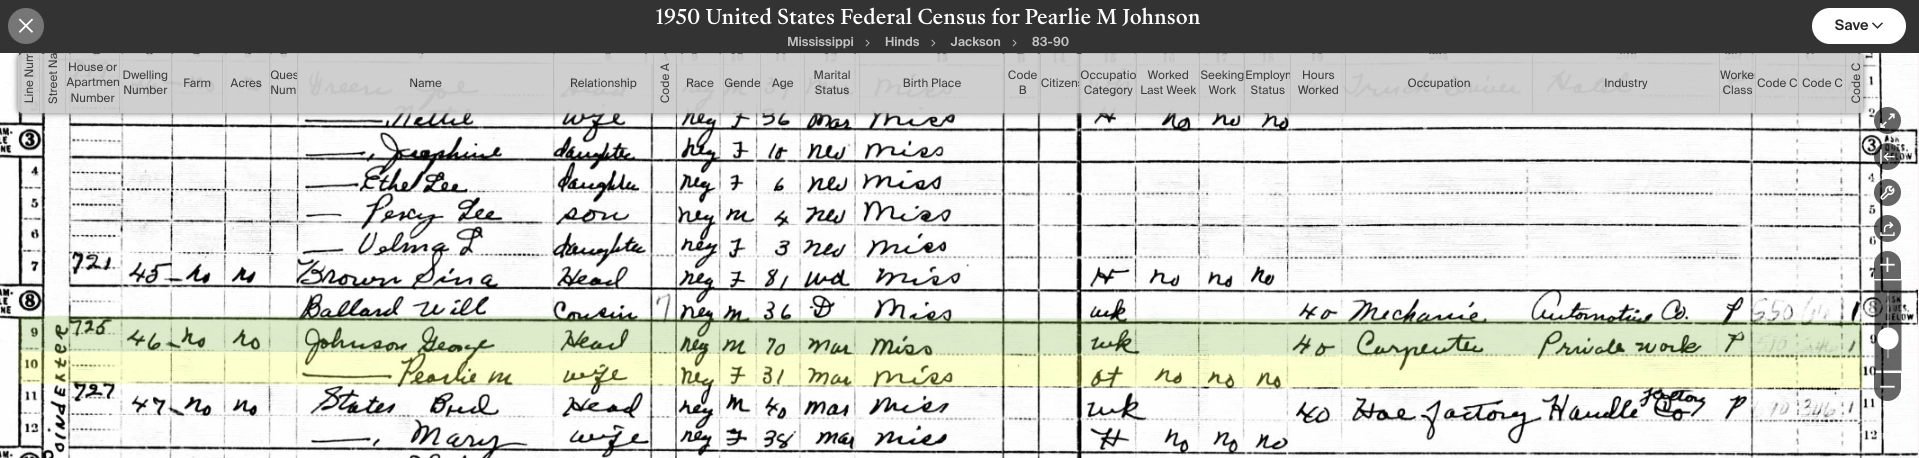 1950 United States Federal Census for Pearlie M Johnson
Save
Mississippi > Hinds > Jackson > 83-90
Line Num Street Na House or Apartmen Number Dwelling Number Farm Acres Ques Num Name Relationship Code A Race Gende Age Marital Status Birth Place Code B Citizen Occupatio Category Worked Last Week Seeking Work Employr Status Hours Worked Occupation Industry Worke Class Code C Code C Code C
1
2 ——, Nettie wife neg F 36 mar Miss H no no no 2
3 ——, Josephine daughter neg F 10 nev Miss 3
4 —— Ethel Lee daughter neg F 6 nev Miss 4
5 —— Percy Lee son neg m 4 nev Miss 5
6 —— Velma L daughter neg F 3 nev Miss 6
7 721 45 no no Brown Sina Head neg F 81 wd Miss H no no no 7
8 Ballard Will Cousin 7 neg m 36 D Miss wk 40 Mechanic Automotive Co. P 550 1 8
9 725 46 no no Johnson George Head neg m 70 mar Miss wk 40 Carpenter Private work P 1 9
10 —— Pearlie m wife neg F 31 mar Miss ot no no no 10
11 727 47 no no States Bud Head neg M 40 mar Miss wk 40 Hoe factory Handle factory Co P 346 1 11
12 ——, Mary wife neg F 38 mar Miss H no no no 12
POINDEXTER